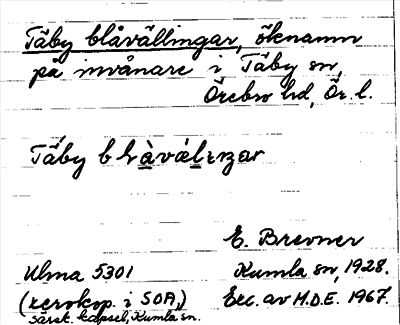 Täby blåvällingar, öknamn
på invånare i Täby sn,
Örebro hd, Ör. l.
Täby
E. Brevner
Ulma 5301 Kumla sn, 1928.
(xerokop. i SOA, Exc. av M.D.E. 1967.
särsk. kapsel, Kumla sn.